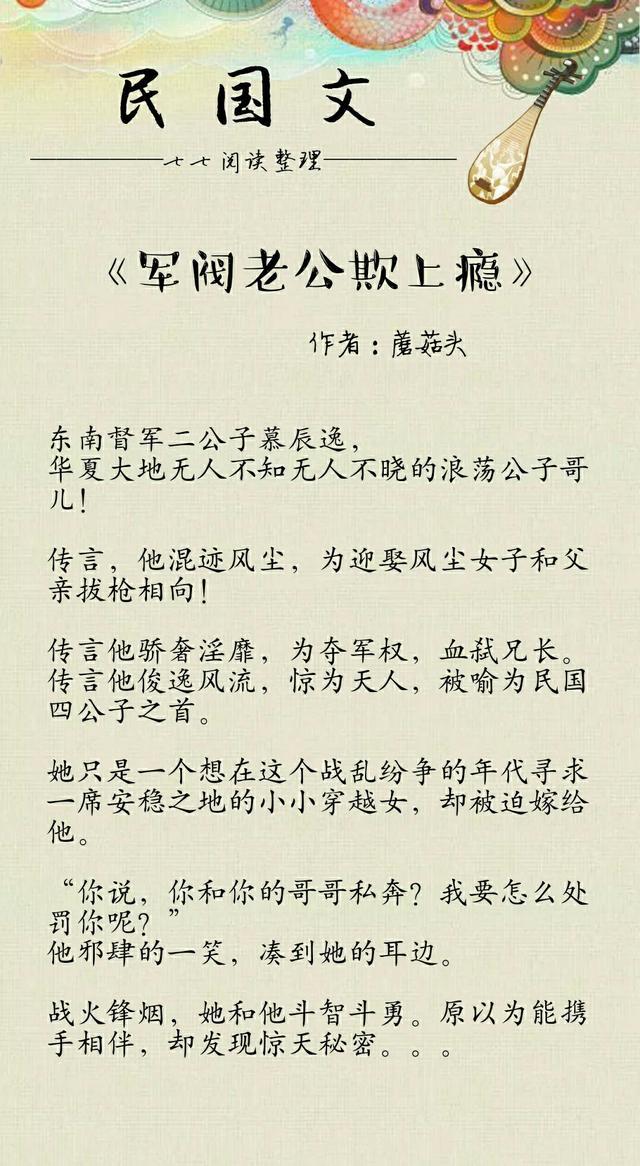 民国文
七七阅读整理
《军阀老公欺上瘾》
作者：蘑菇头
东南督军二公子慕辰逸，
华夏大地无人不知无人不晓的浪荡公子哥
儿！
传言，他混迹风尘，为迎娶风尘女子和父
亲拔枪相向！
传言他骄奢淫靡，为夺军权，血弑兄长。
传言他俊逸风流，惊为天人，被喻为民国
四公子之首。
她只是一个想在这个战乱纷争的年代寻求
一席安稳之地的小小穿越女，却被迫嫁给
他。
“你说，你和你的哥哥私奔？我要怎么处
罚你呢？”
他邪肆的一笑，凑到她的耳边。
战火锋烟，她和他斗智斗勇。原以为能携
手相伴，却发现惊天秘密。。。